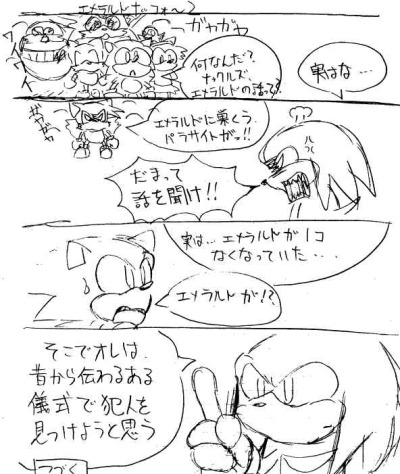 エメラルドがっフォ〜つ
ガヤガヤ
ワイワイ
何なんだ?
ナックルズ、
エメラルドの話って?
実はな…
ガヤガヤ
エメラルドに巣くう
パラサイトがっ!!
だまって
話を聞け!!
実は…エメラルドが1コ
なくなっていた・・・
エメラルドが!?
そこでオレは、
昔から伝わるある
儀式で犯人を
見つけようと思う
つづく